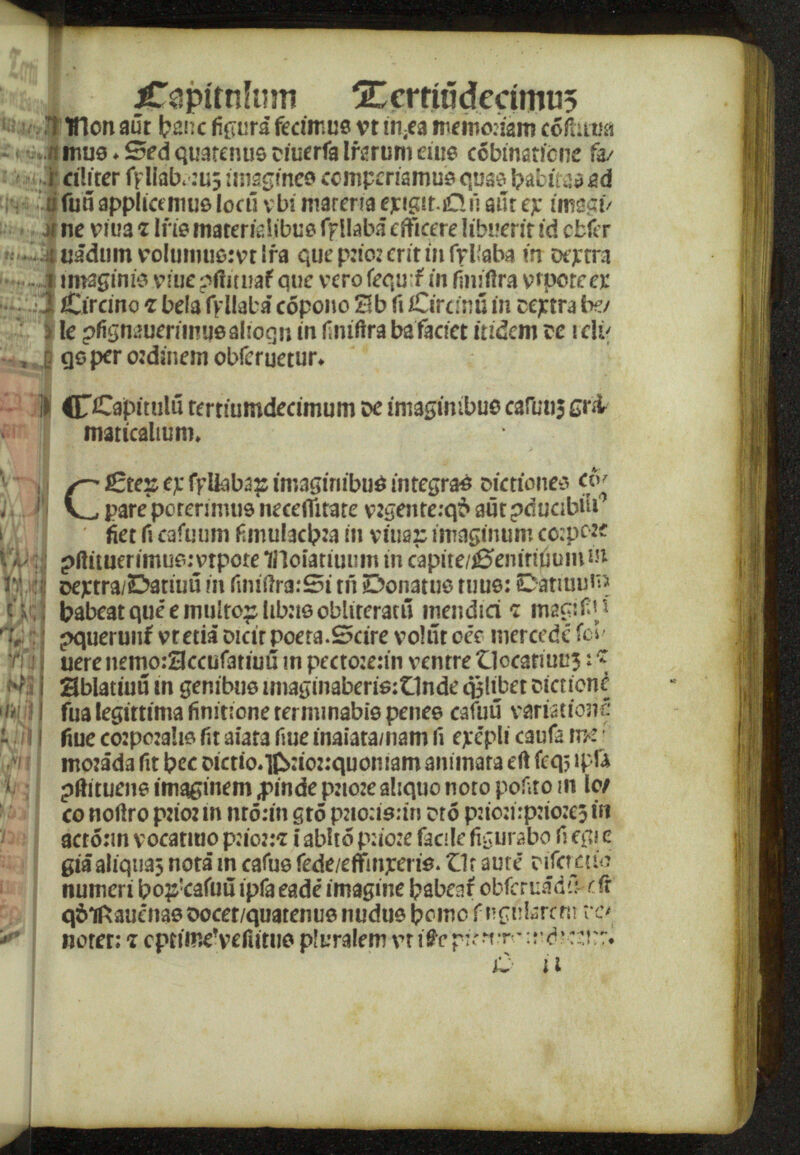 Capitulum Tertiūdecimuꝫ
Non aūt hanc figurā fecimus vt in ea memoriam cōstitua
mus. Sed quatenus diuersa lr̄arum eius cōbinatione fa/
ciliter syllabaruꝫ imagines comperiamus quas habitas ad
suū applicemus locū vbi materia exigit. Qn̄ aūt ex imagi/
ne viua ⁊ lr̄is materialibus syllabā efficere libuerit id obser
uādum volumus: vt lr̄a que prior erit in syllaba in dextra
imaginis viue ꝯstituat̄ que vero sequit̄ in sinistra vtpote ex
Circino ⁊ bela syllabā cōpono Ab si Circinū in dextra be/
le ꝯsignauerimus alioqn in sinistra ba faciet itidem de reli/
qs per ordinem obseruetur.
¶ Capitulū tertiumdecimum de imaginibus casuuꝫ grā
maticalium.
CEteꝝ ex syllabaꝝ imaginibus integras dictiones cō/
pare poterimus necessitate vrgente: qď aūt ꝓducibiliꝰ
fiet si casuum simulachra in viuaꝝ imaginum corpore
ꝯstituerimus: vtpote Noiatiuum in capite/Genitiūum in
dextra/Datiuū in sinistra: Si tn̄ Donatus tuus: Datiuum
habeat quē e multoꝝ libris obliteratū mendici ⁊ magistri
ꝯquerunt̄ vt etiā dicit poeta. Scire volūt oēs mercedē sol/
uere nemo: Accusatiuū in pectore: in ventre Uocatiuuꝫ: ⁊
Ablatiuū in genibus imaginaberis: Unde qꝫlibet dictionē
sua legittima finitione terminabis penes casuū variationē
siue corporalis sit aīata siue inaīata/nam si exēpli causa me/
morāda sit hec dictio. Prior: quoniam animata est seqꝫ ipsā
ꝯstituens imaginem ꝓinde priore aliquo noto posito in lo/
co nostro prior in ntō: in gtō prioris: in dtō priori: prioreꝫ in
actō: in vocatiuo prior: ⁊ i abltō priore facile figurabo si egre
giā aliquaꝫ notā in casus sede/effinxeris. Ut autē discretio
numeri hoꝝ casuū ipsa eadē imagine habeat̄ obseruādū est
qď Rauēnas docet/quatenus nudus homo singularem de/
notet: ⁊ optime vestitus pluralem